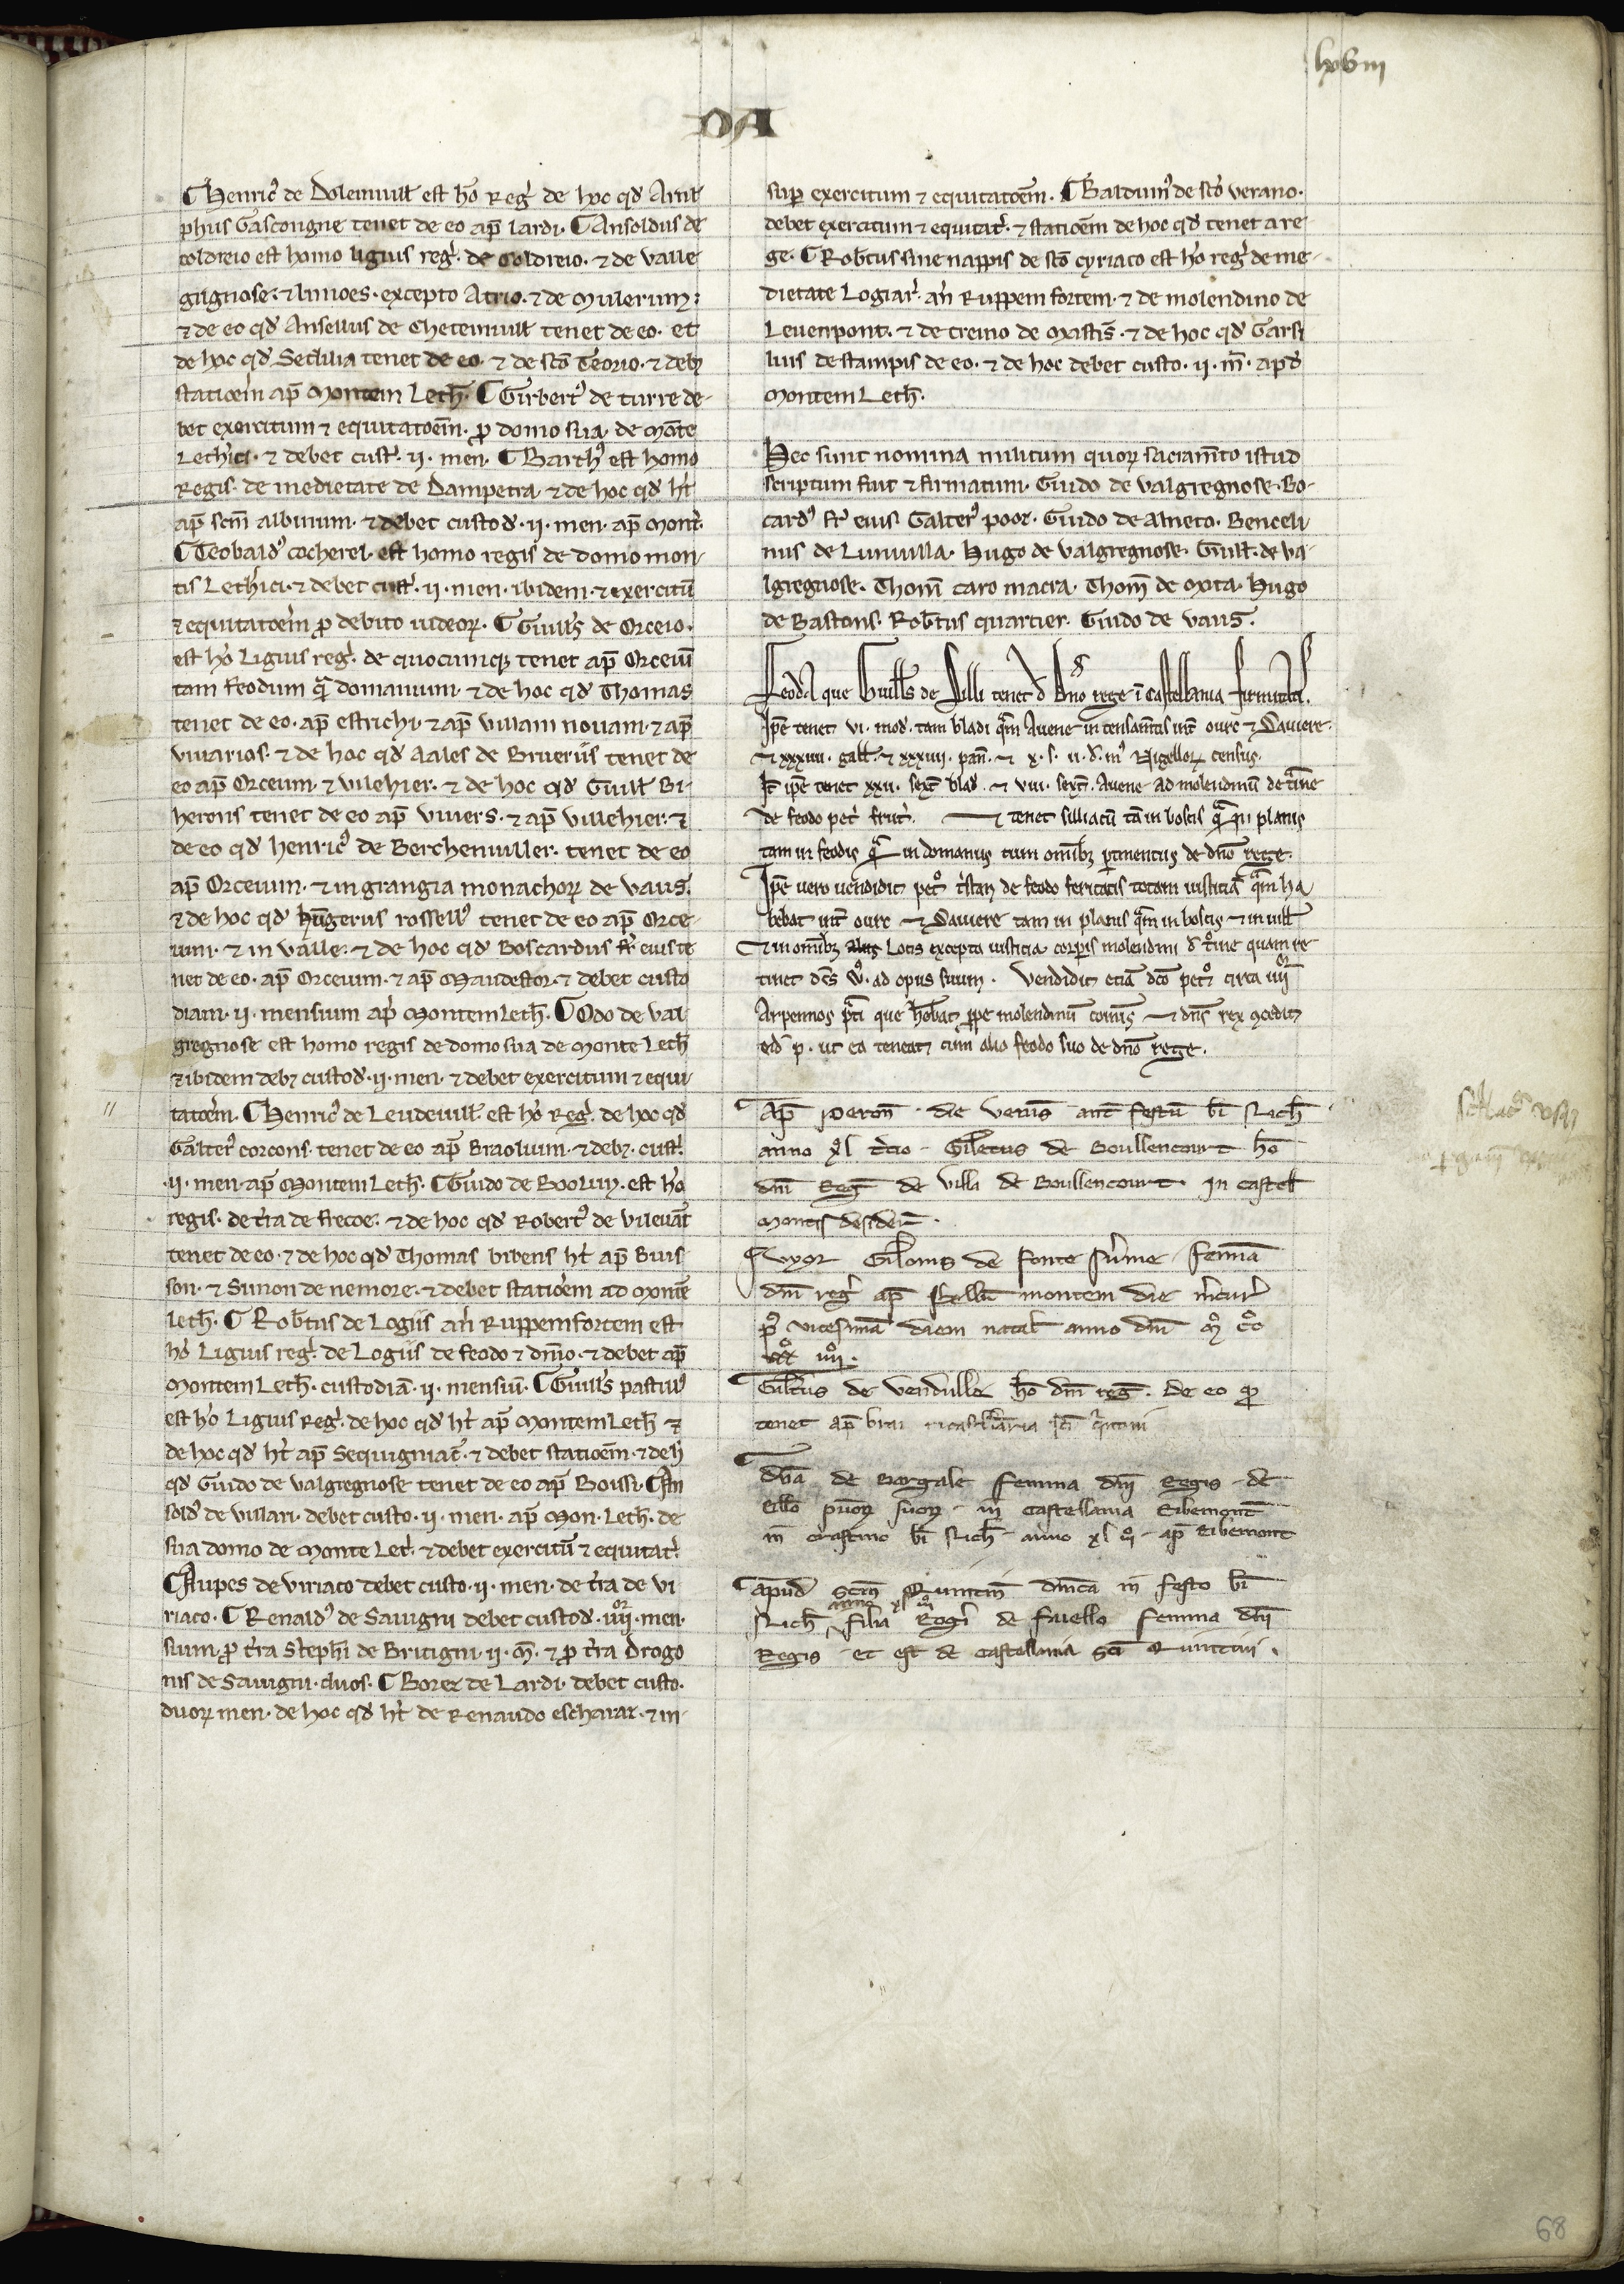 lxviii
OA
¶ Henric⁹ de Doleinuill est hō Reg̕. de hoc qđ Arnl
phus Gascongne tenet de eo ap̄ lardi. ¶ Ansoldus de
coldreio est homo ligius reg̕. de Coldreio. ⁊ de valle
grignose. ⁊ excepto Atrio. ⁊ de
⁊ de eo qđ Ansellus de Cheteinuill tenet de eo. et
de hoc qđ Sedilia tenet de eo. ⁊ de sc̄o Teorio. ⁊ debꝫ
statioēm ap̄ Montem Leth̄. ¶ Girbert⁹ de turre de-
bet exercitum ⁊ equitatoēm. ꝓ domo sua. de mōte
Lethici. ⁊ debet cust̕. ii. men. ¶ Barth⁹ est homo
Regis. de medietate de Dampetra. ⁊ de hoc qđ ht̄
ap̄ sc̄m albinum. ⁊ debet custođ. ii. men. ap̄ mont̕.
¶ Teobald⁹ cocherel. est homo regis de domo mon-
tis Lethici. ⁊ debet cust̕. ii. men. ibidem. ⁊ exercitū
⁊ equitatoēm ꝓ debito iudeoꝝ. ¶ Guill̄s de Orceio.
est hō Ligius reg̕. de quocumqꝫ tenet ap̄ Orceiū
tam feodum q̄ domanium. ⁊ de hoc qđ Thomas
tenet de eo. ap̄ estrichi. ⁊ ap̄ villam nouam. ⁊ ap̄
viuarios. ⁊ de hoc qđ Aales de Brueriis tenet de
eo ap̄ Orceum. ⁊ vilehier. ⁊ de hoc qđ Guill Bi-
herons tenet de eo ap̄ viuiers. ⁊ ap̄ villehier. ⁊
de eo qđ henric⁹ de Berchenuiller. tenet de eo
ap̄ Orceium. ⁊ in grangia monachoꝝ de vaus.
⁊ de hoc qđ hūgerus rossell⁹ tenet de eo ap̄ Orce-
ium. ⁊ in valle. ⁊ de hoc qđ Boscardus fr̄ eius te
net de eo. ap̄ Orceium. ⁊ ap̄ Maudestor. ⁊ debet custo
diam. ii. mensium ap̄ Montem Leth̄. ¶ Odo de val-
gregnose est homo regis de domo sua de monte Leth̄
⁊ ibidem debꝫ custođ. ii. men. ⁊ debet exercitum ⁊ equi-
tatoēm. ¶ Henric⁹ de Leudeuill. est hō Reg̕. de hoc qđ
Galter⁹ corcons. tenet de eo ap̄ Braolium. ⁊ debꝫ. cust̕.
ii. men. ap̄ Montem Leth̄. ¶ Guido de Booluy. est hō
regis. de t̄ra de frecoe. ⁊ de hoc qđ Robert⁹ de
tenet de eo. ⁊ de hoc qđ Thomas bibens ht̄ ap̄ Buis-
son. ⁊ Simon de nemore. ⁊ debet statioēm ad montē
leth̄. ¶ Rob̄tus de Logiis an̄ Ruppemfortem est
hō Ligius reg̕. de Logiis de feodo ⁊ dm̄o. ⁊ debet ap̄
Montem Leth̄. custodiā. ii. mensiū. ¶ Guill̄s pastill⁹
est hō Ligius Reg̕. de hoc qđ ht̄ ap̄ Montem Leth̄ ⁊
de hoc qđ ht̄ ap̄ Sequigniac̄. ⁊ debet statioēm. ⁊ de h̄
qđ Guido de valgregnose tenet de eo ap̄ Boissi. ¶ An
solđ de villari. debet custo. ii. men. ap̄ Mon. Leth̄. de
sua domo de monte Let̕. ⁊ debet exercitū ⁊ equitat̕.
¶ Aupes de viriaco debet custo. ii. men. de t̄ra de vi
riaco. ¶ Renald⁹ de Sauigni debet custođ. iiiiᵒʳ. men-
sium. ꝓ t̄ra Stephi de Britigni. ii. m̄. ⁊ ꝓ t̄ra Drogo
nis de Sauigni. duos. ¶ Borer de Lardi. debet custo.
duoꝝ men. de hoc qđ ht̄ de Renaudo escharar. ⁊ in-
sup exercitum ⁊ equitatoēm. ¶ Balduin⁹ de sc̄o verano.
debet exercitum ⁊ equitat̕. ⁊ statioēm de hoc qđ tenet a re
ge. ¶ Rob̄tus sine nappis de sc̄o cyriaco est hō reg̕ de me-
dietate Logiar̕. an̄ Ruppem fortem. ⁊ de molendino de
Leuenpont. ⁊ de tremo de Mastis̄. ⁊ de hoc qđ Garsi
lius de stampis de eo. ⁊ de hoc debet custo. ii. m̄. apđ
Montem Leth̄.
Hec sunt nomina militum quoꝝ sacram̄to istud
scriptum fuit ⁊ firmatum. Guido de valgregnose. Bo-
card⁹ fr̄ eius. Galter⁹ poor. Guido de alneto. Benceli
nus de Linuilla. Hugo de valgregnose. Guill̄. de va-
lgregnose. Thom̄ caro macra. Thom̄ de oxta. Hugo
de Bastons. Rob̄tus quartier. Guido de vaus.
Feoda que Guill̄s de Silli tenet đ dn̄o rege ī castellania firmitatis.
Ip̄e tenet vi. mođ. tam bladi q̄m Auene in tensam̄tis int̄ ourc ⁊ Sauiere.
⁊ xxxiiii. gall̄. ⁊ xxxiiii. pan̄. ⁊ x. s. ii. đ. min⁹ Nigelloꝝ census.
It̄ ip̄e tenet xxii. sext̄ blađ. ⁊ viii. sext̄. Auene ad molendinū de
de feodo pet̕ frut̕. ⁊ tenet silliacū tā in boscis q̄ in planis
tam in feodis q̄ in domaniis cum om̄ibꝫ ꝑtinentiis de dn̄o rege.
Ip̄e uero uendidit pet⁹ t̕stan de feodo feritatis totam iusticiā q̄m ha
bebat int̄ ourc ⁊ Sauiere tam in planis q̄m in boscis ⁊ in vill̄
⁊ in om̄ibꝫ aliis Locis excepta iusticia corꝑis molendini đ quam re
tinet dc̄s W⁹. ad opus suum. Vendidit etiā dc̄o pet⁹ circa iiiiᵒʳ
Arpennos p̄ti que h̄ebat ꝓpe molendinū ⁊ dn̄s rex ꝯcedit
eiđ p. ut ea teneat cum alio feodo suo de dn̄o rege.
Ap̄ peron̄. die ven̄is ant̄ festū bī Nich̄
anno xl t̕cio. Giletus de Boullencourt hō
dn̄i Reḡ de villa de Boullencourt. in castel̄
Montis desiderī.
¶ vxor Gilonis de fonte sūme. femīa
dn̄i reg̕ ap̄ montem die m̄cur̕
p⁹ vicesimā diem natal̄ anno dn̄i mᵒ ccᵒ
iiiiᵒ.
Gil̄tus de vendulle hō dn̄i reḡ. de eo qđ
tenet ap̄
dn̄a de Bargale femina dn̄i Regis. de
ball̄o puoꝝ suoꝝ. in castellania Ribemont̄
in crastino bī Nich̄. anno xl iiiᵒ. ap̄ Ribemont
Apud sc̄m Quintin̄ dn̄ica in festo bī
Nich̄ anno xl iiiᵒ filia Rog̕i de faiello femina dn̄i
Regis et est de castellania sc̄i Quintini.
68